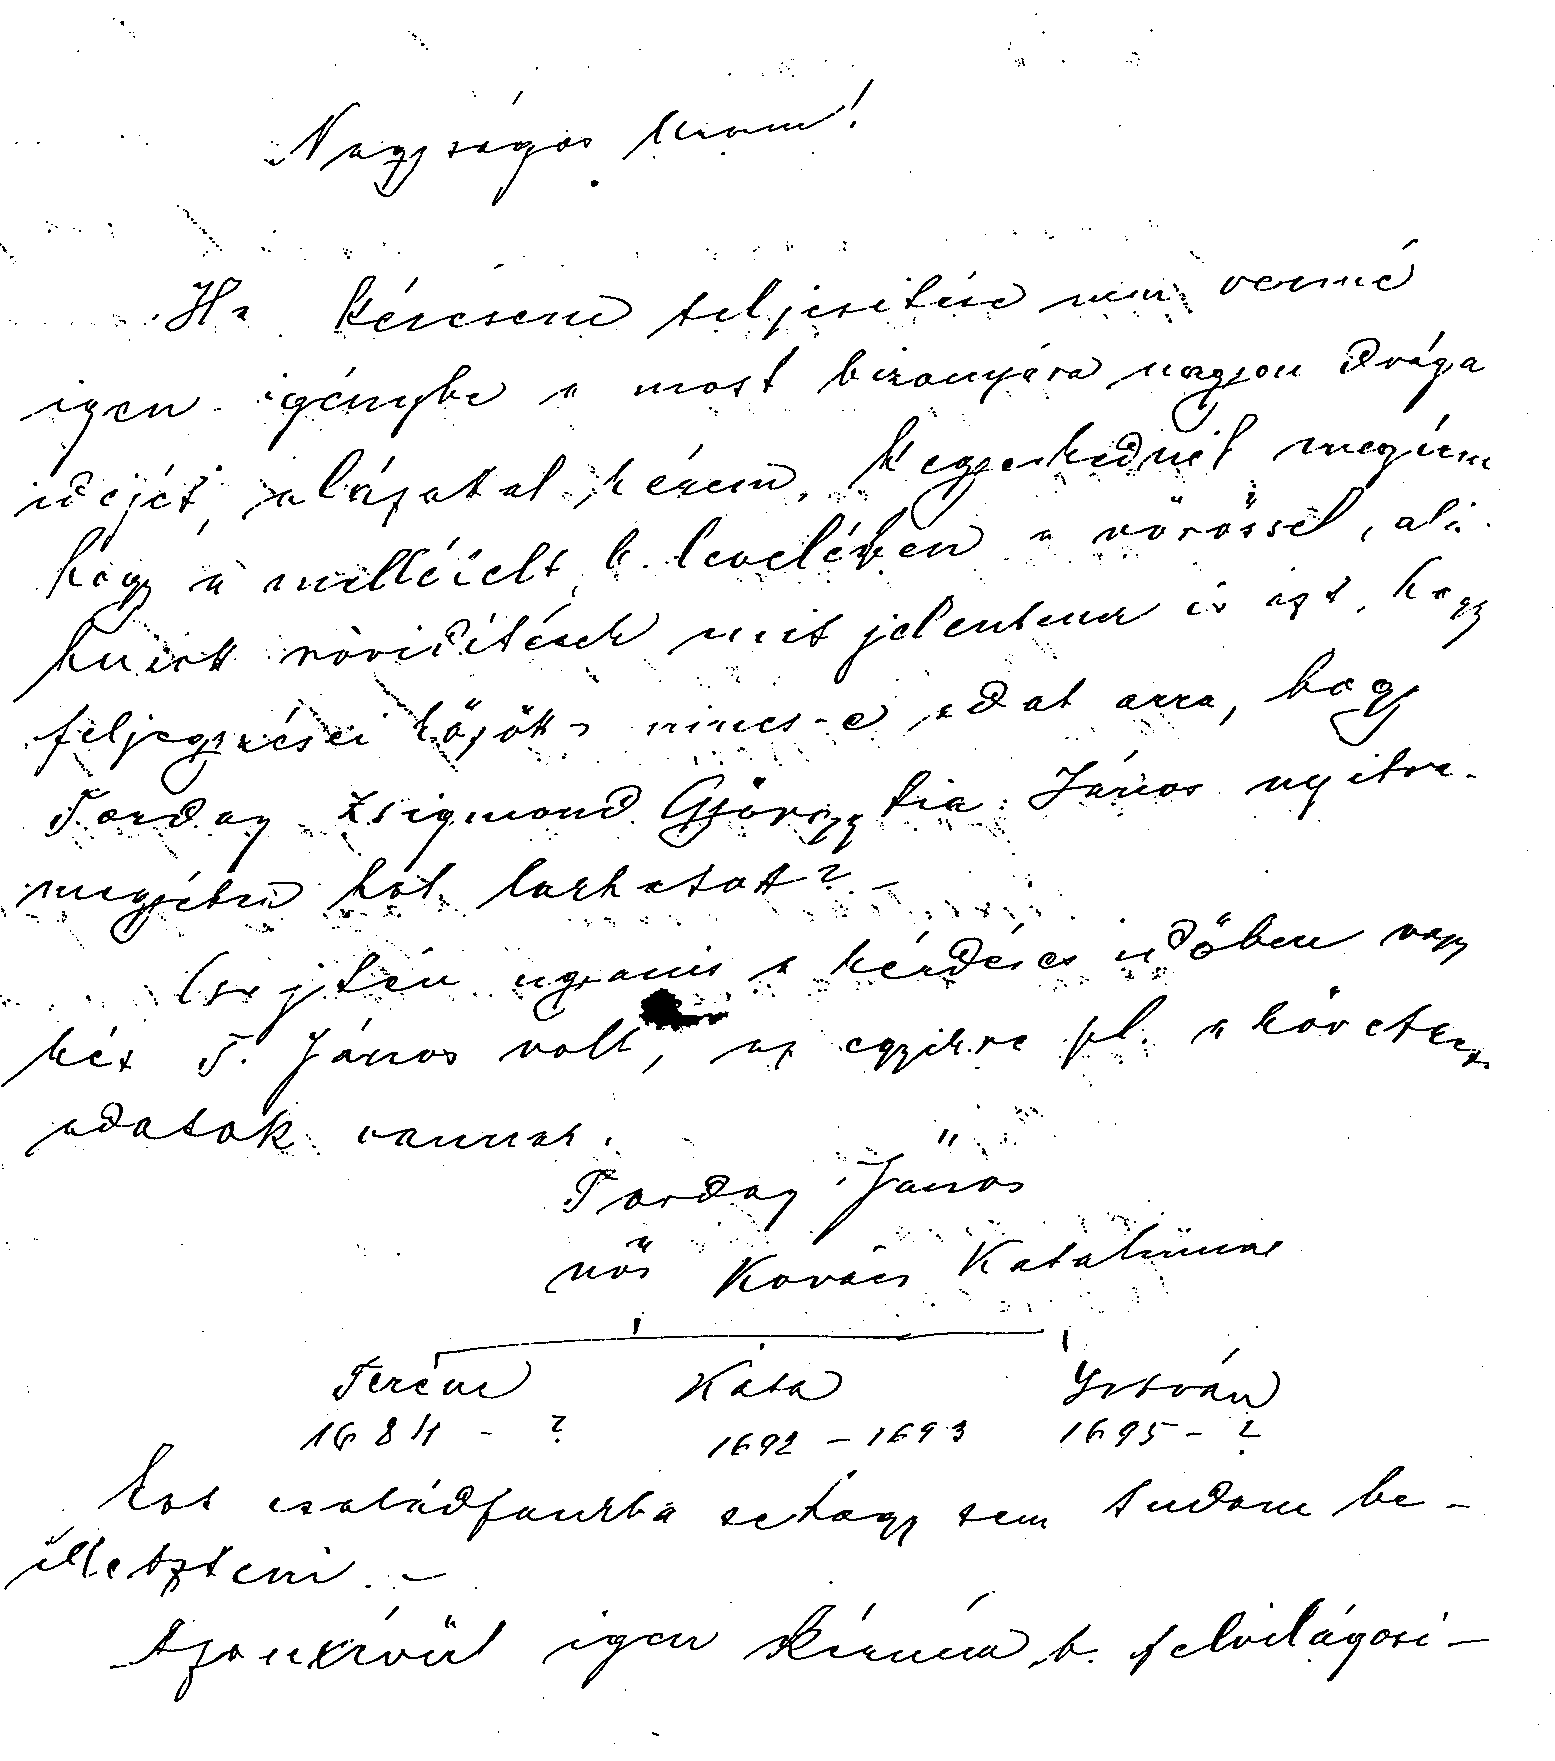 Nagyságos Uram!
Ha kérésem teljesitése nem venné
igen igénybe a most bizonyára nagyon drága
idejét, alázatal kérem, kegyeskednék megirni
hogy a mellékelt b. levelében a vörössel alá-
huzott rövidítések mit jelentenek és azt, hogy
feljegyzései között nincs-e adat arra, hogy
Torday Zsigmond György fia János nyitra-
megyében hol lakhatott? –
Csejtén ugyanis a kérdéses időben vagy
két T. János volt, az egyikre pl. a következő
adatok vannak.
Torday János
nős Kovács Katalinnal
Terézia Kata István
1684 - ? 1692 - 1693 1695 - ?
Ezt családfánkba sehogy sem tudom be-
illeszteni. –
Azonkívül igen kérném b. felvilágosi-